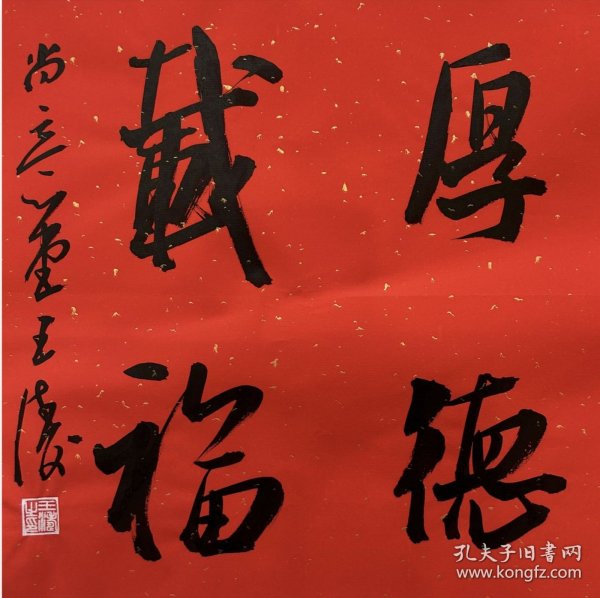 厚德
载福
尚意堂王
孔夫子旧书网
www.kongfz.com